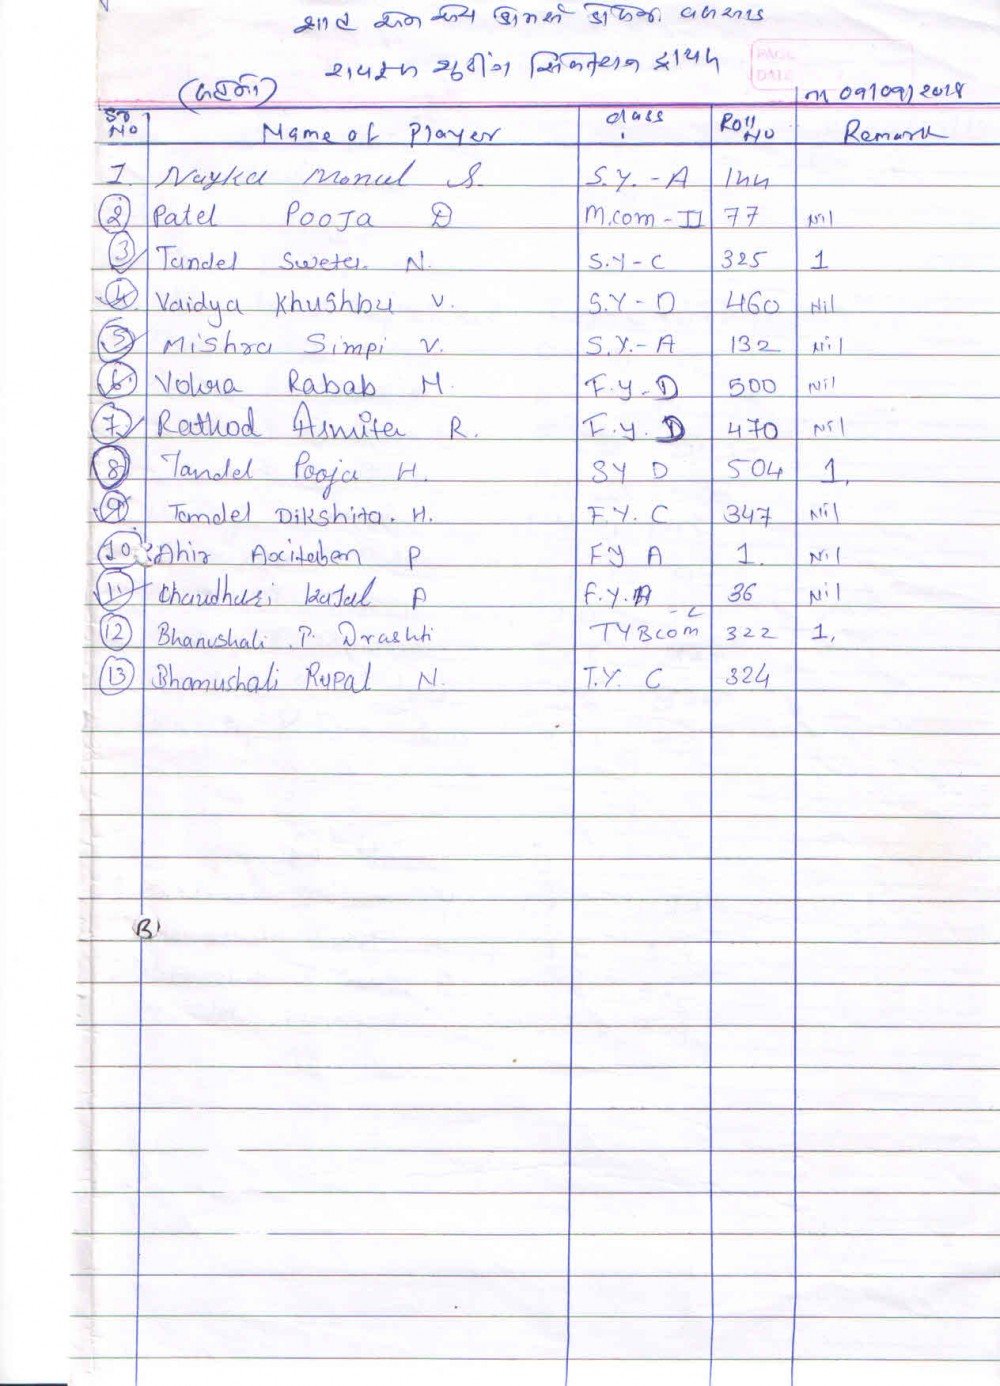 શાહ એન કે કોમર્સ કોલેજ વલસાડ
રાયફલ શૂટીંગ સિલેકશન ટ્રાયલ
PAGE
DATE
(બહેનો)
તા 09/09/2018
ક્રમ NO Name of Player Class Roll No Remark
1. Nayka Monal S. S.Y. - A 144
2 Patel Pooja D M.com - II 77 Nil
3 Tandel Sweta N. S.Y - C 325 1
4 Vaidya Khushbu V. S.Y - D 460 Nil
5 Mishra Simpi V. S.Y. - A 132 Nil
6 Vohra Rabab M. F.y - D 500 Nil
7 Rathod Asmita R. F.y. D 470 Nil
8 Tandel Pooja H. SY D 504 1,
9 Tandel Dikshita. H. F.Y. C 347 Nil
10 Ahir Axitaben P FY A 1. Nil
11 Chaudhari Kajal P F.Y.A 36 Nil
12 Bhanushali .P. Drashti TYBcom - C 322 1,
13 Bhanushali Rupal N. T.Y. C 324
B